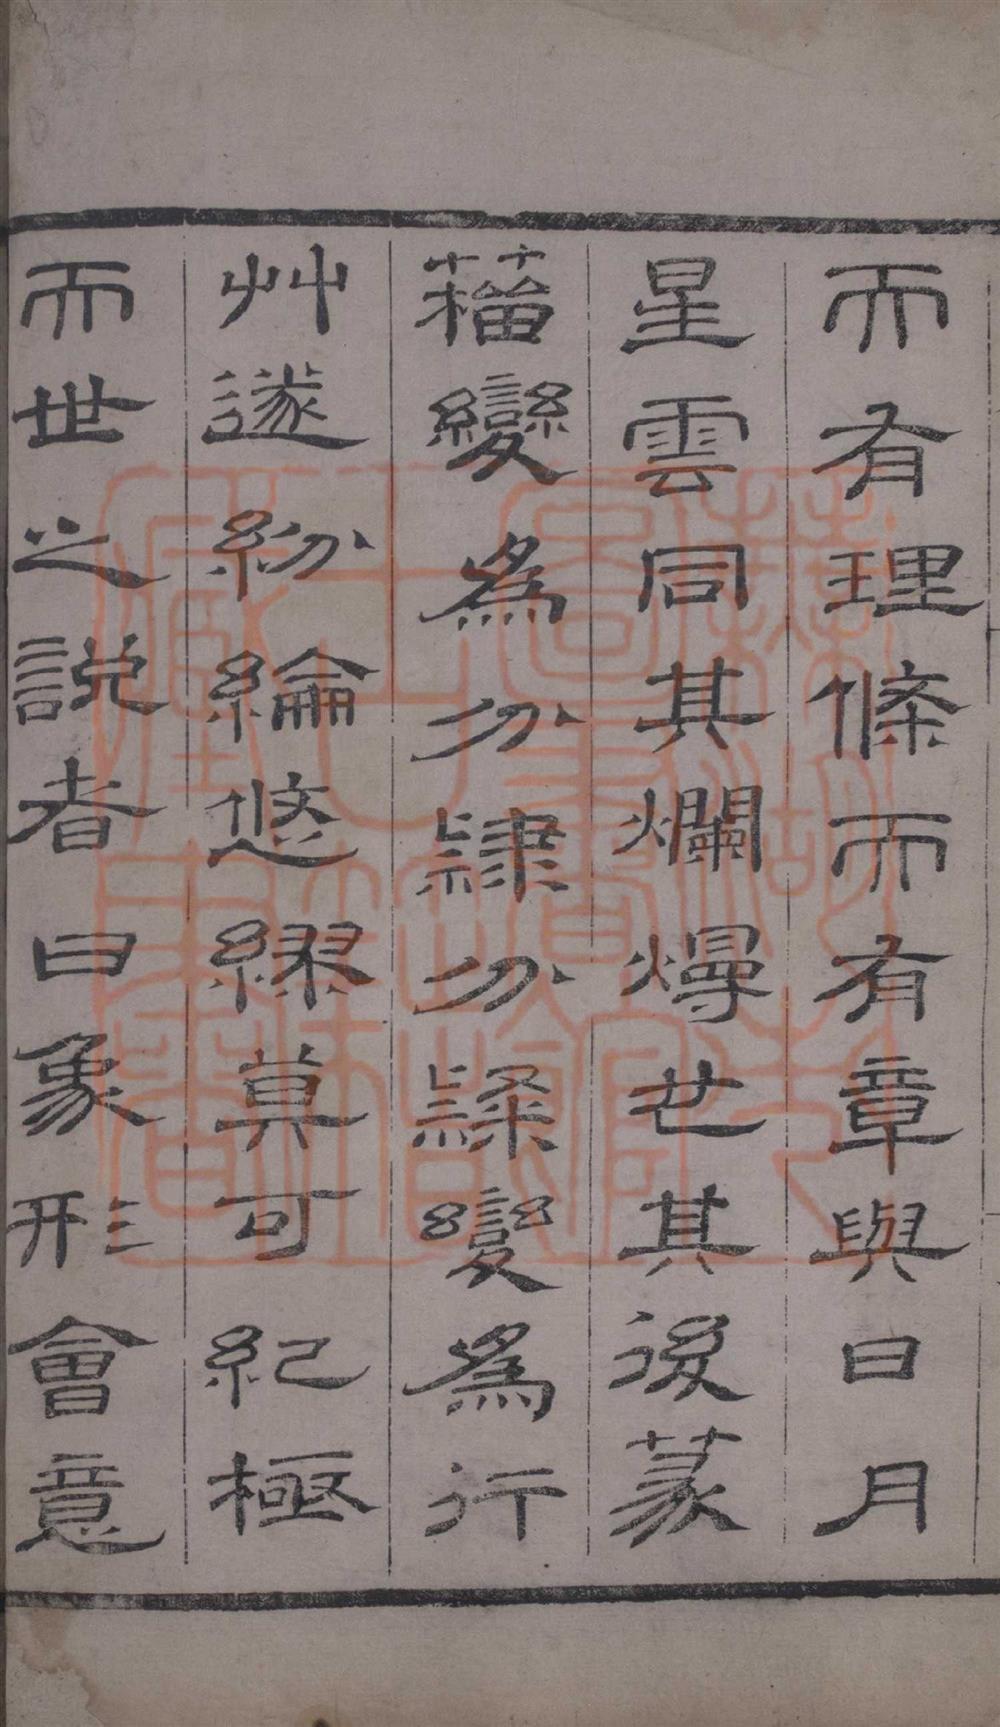 而有理條而有章與日月
星雲同其爛熳也其後篆
籀變為分隸分隸變為行
艸遂紛綸悠繆莫可紀極
而世之説者曰象形會意